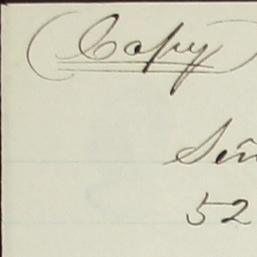 (Copy)
Señ
52